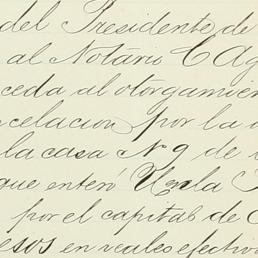 del Presidente de
al Notario C Ag
ceda al otorgamien
celacion por la
la casa Nº 9 de
que enteró en la
por el capital de
esos en reales efectivo